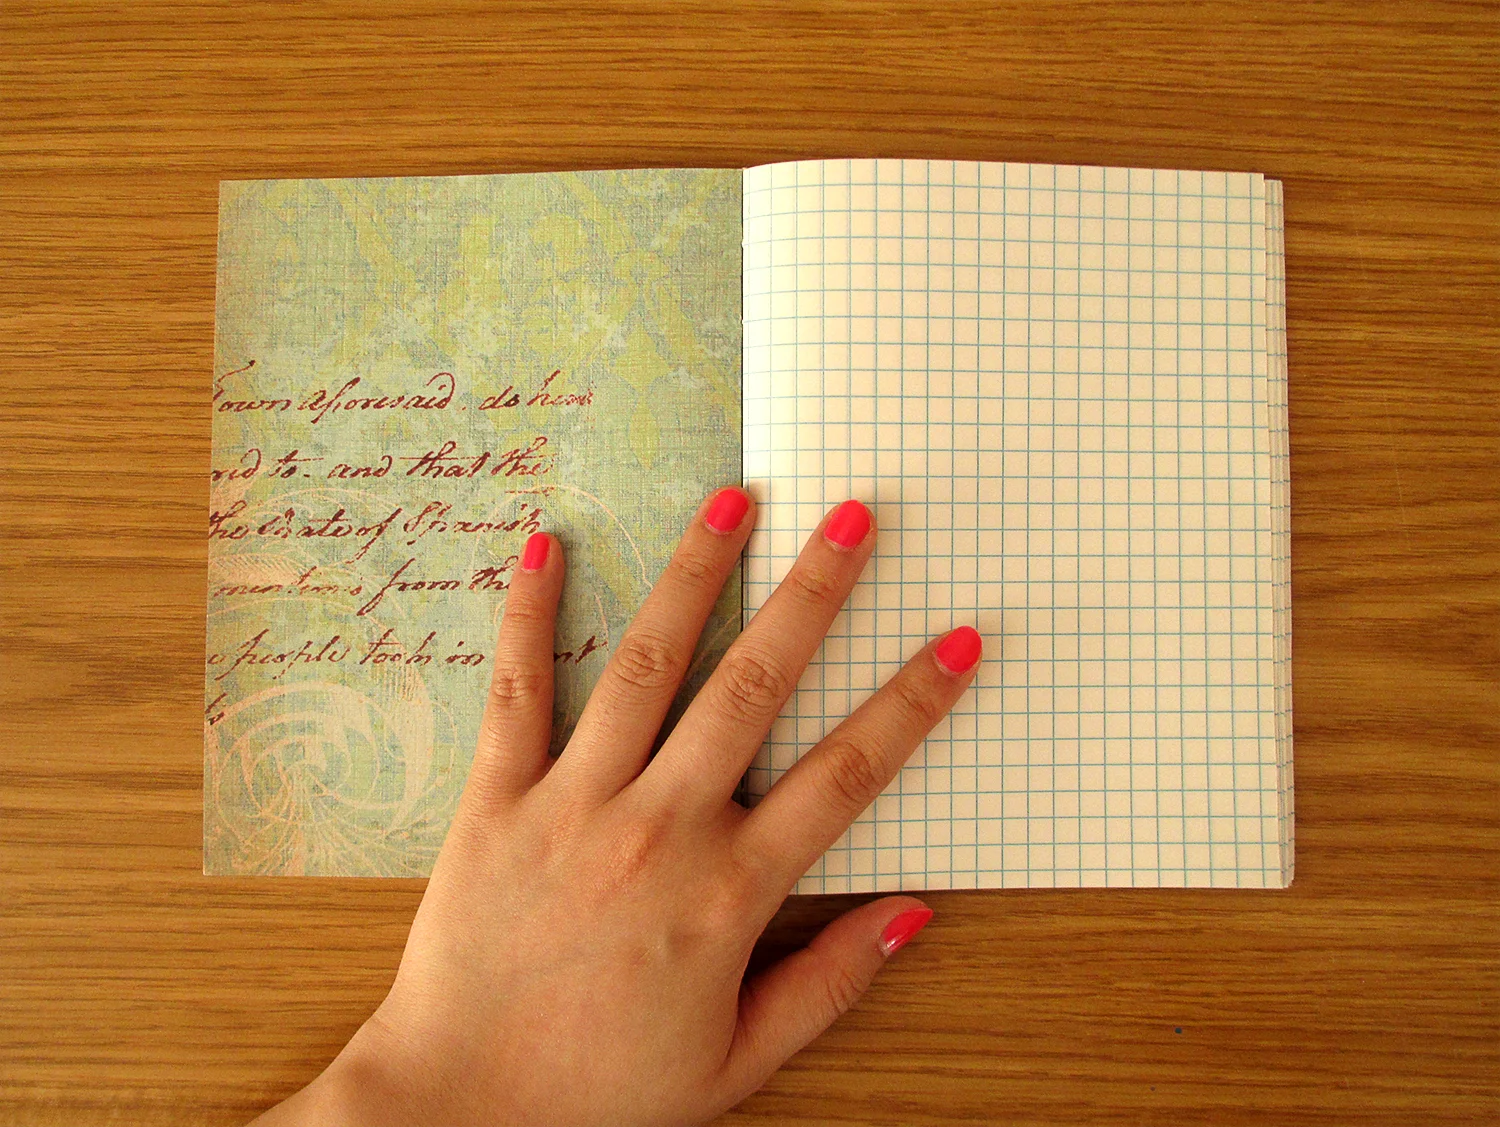 Town aforesaid. do her
and to. and that the
the State of Spanish
from the
people took in